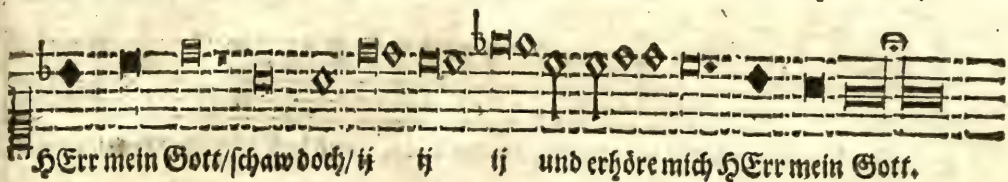 HErr mein Gott/schaw doch/ ij ij ij und erhöre mich HErr mein Gott.